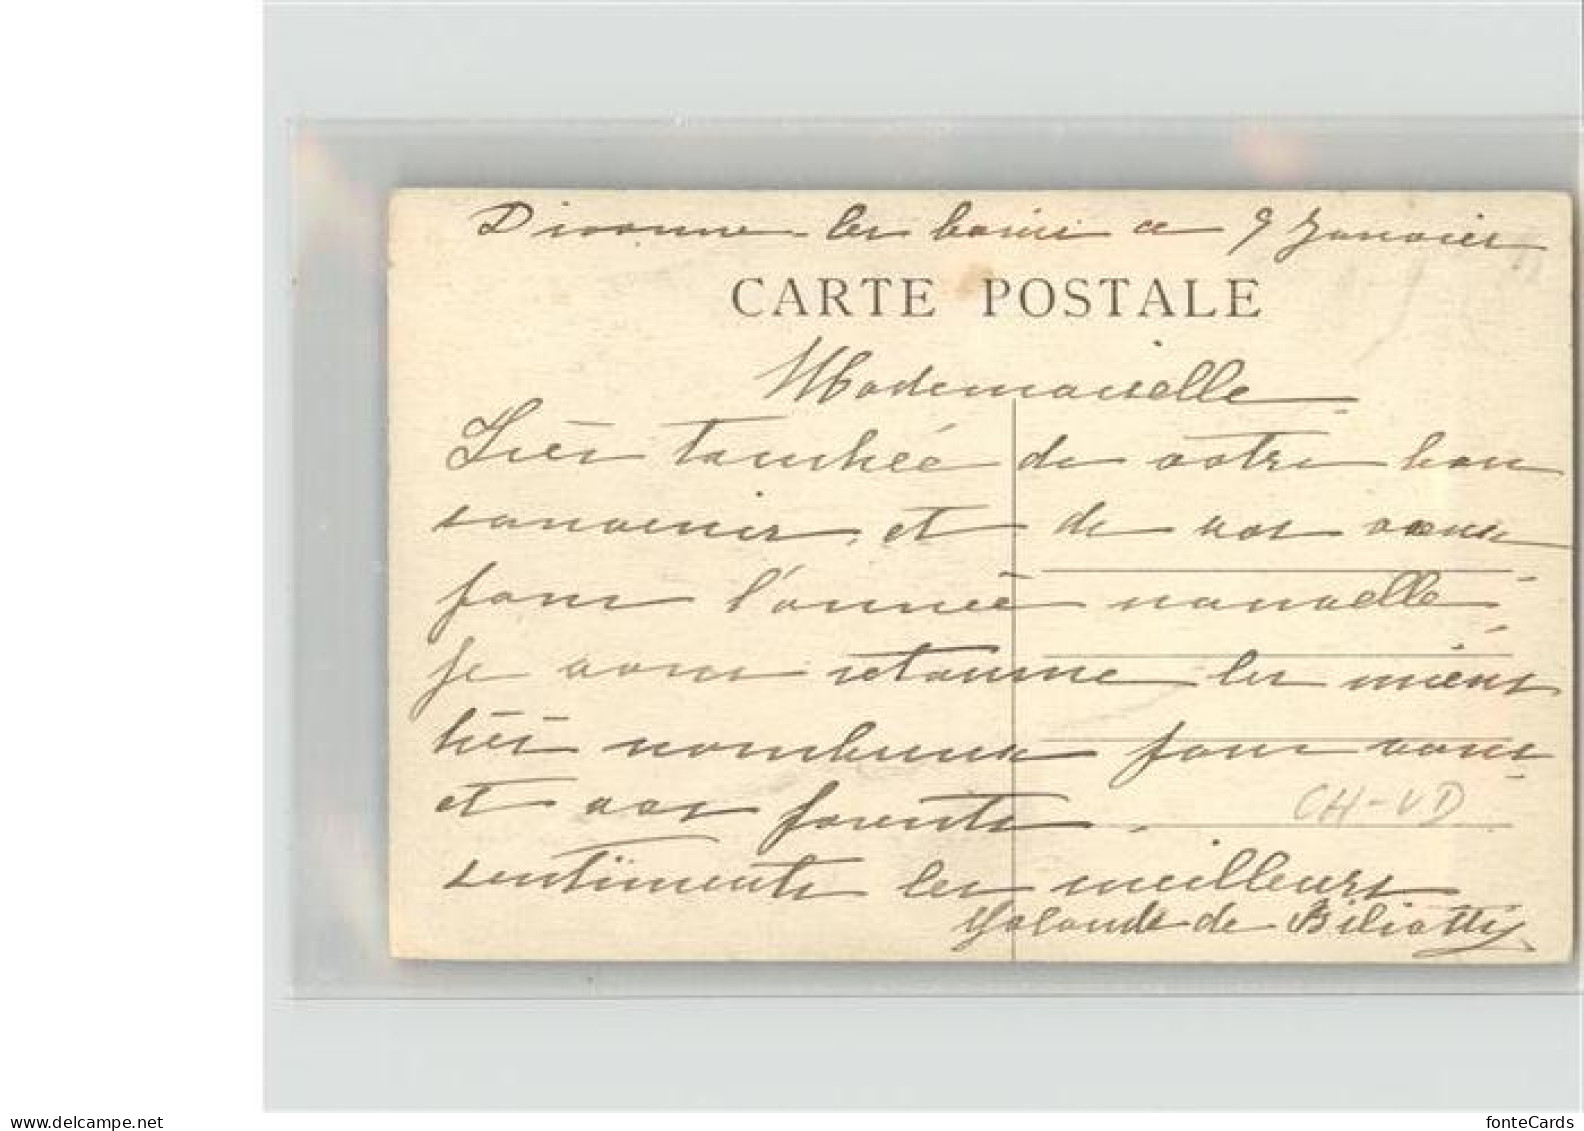 Divonne les bains ce 9 Janvier
CARTE POSTALE
Mademoiselle
Très touchée de votre bon
souvenir, et de vos vœux
pour l'année nouvelle,
je vous retourne les miens
très nombreux pour vous
et vos parents.
CH-VD
sentiments les meilleurs
Yolande de Biliotti
www.delcampe.net
fonteCards